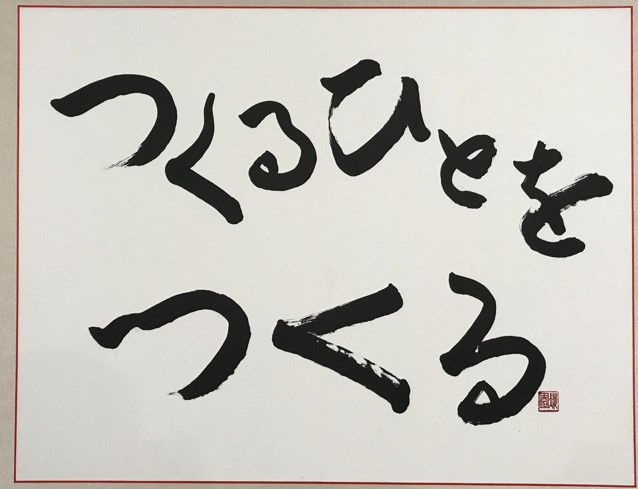 つくるひとを
つくる